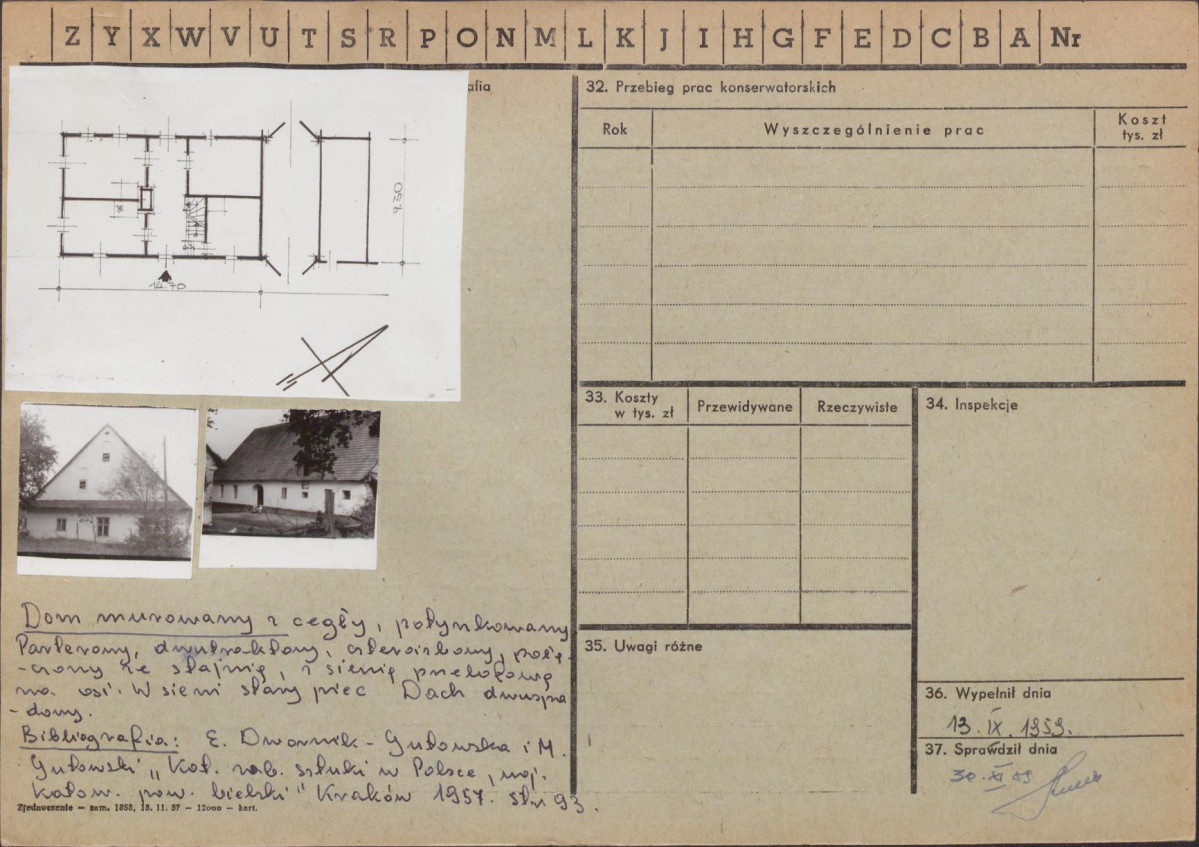 Z Y X W V U T S R P O N M L K J I H G F E D C B A Nr
afia
14.70
9.30
Dom murowany z cegły, potynkowany
Parterowy, dwutraktowy, czteroizbowy, połą-
-czony ze stajnią, z sienią przelotową
na osi. W sieni stary piec Dach dwuspa
-dowy.
Bibliografia: E. Dwornik-Gutowska i M.
Gutowski „Kat. zab. sztuki w Polsce, woj.
Katow. pow. bielski" Kraków 1957. str 93.
Zjednoczenie — zam. 1858, 18. 11. 57 — 12000 — kart.
32. Przebieg prac konserwatorskich
Rok
Wyszczególnienie prac
Koszt
tys. zł
33. Koszty
w tys. zł
Przewidywane
Rzeczywiste
34. Inspekcje
35. Uwagi różne
36. Wypełnił dnia
13. IX. 1959.
37. Sprawdził dnia
30. XI 59